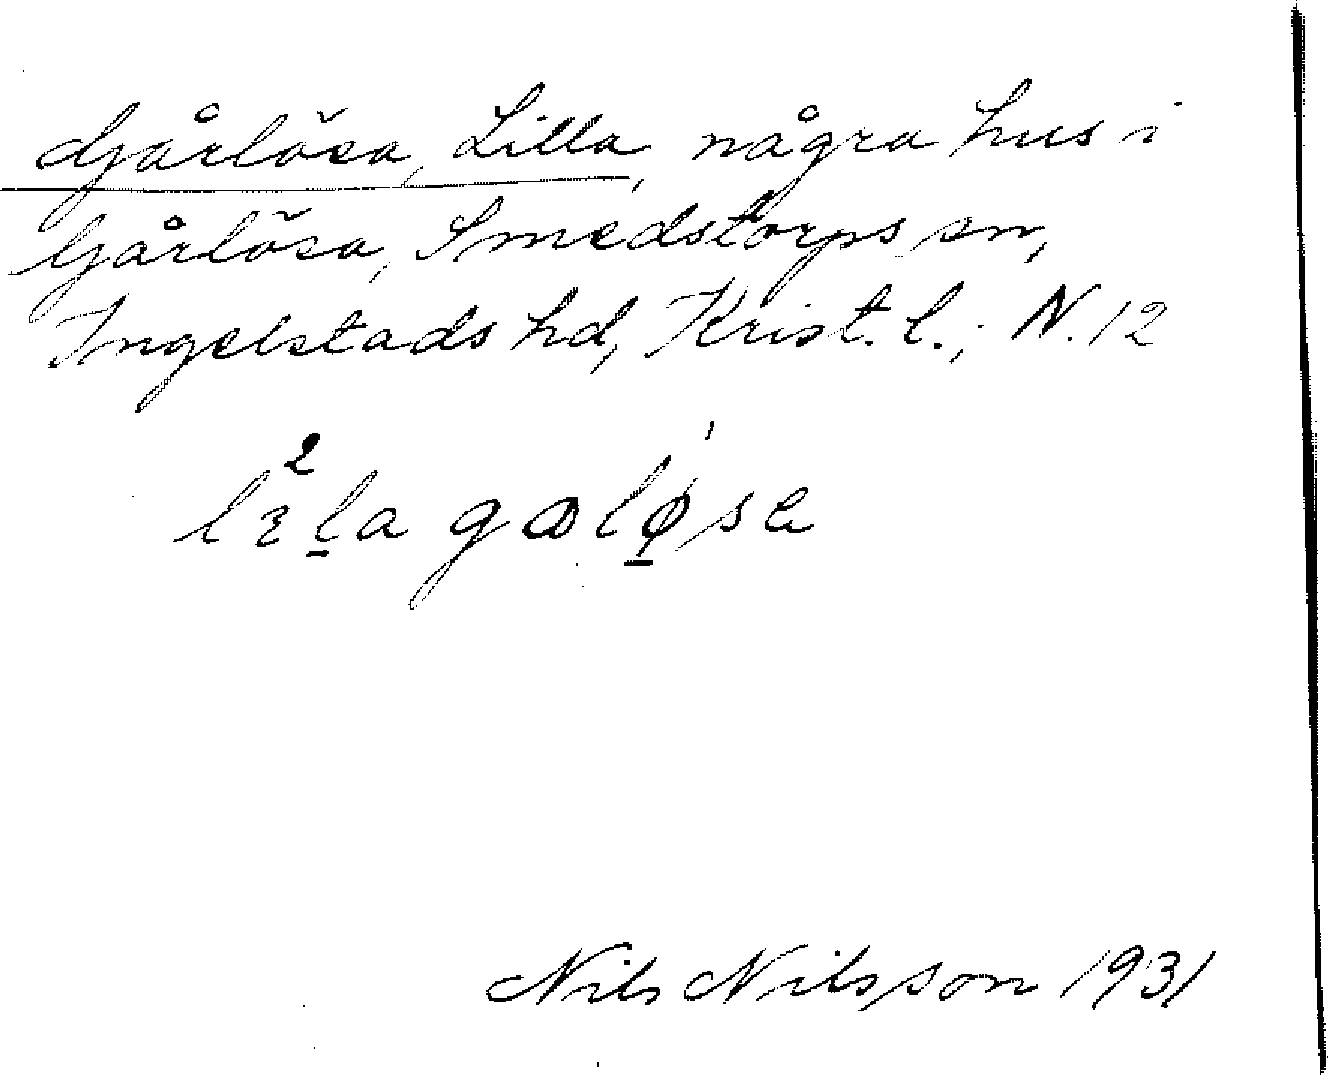 Gårlösa, Lilla, några hus i
Gårlösa, Smedstorps sn,
Ingelstads hd, Krist. l.; N. 12
Nils Nilsson 1931